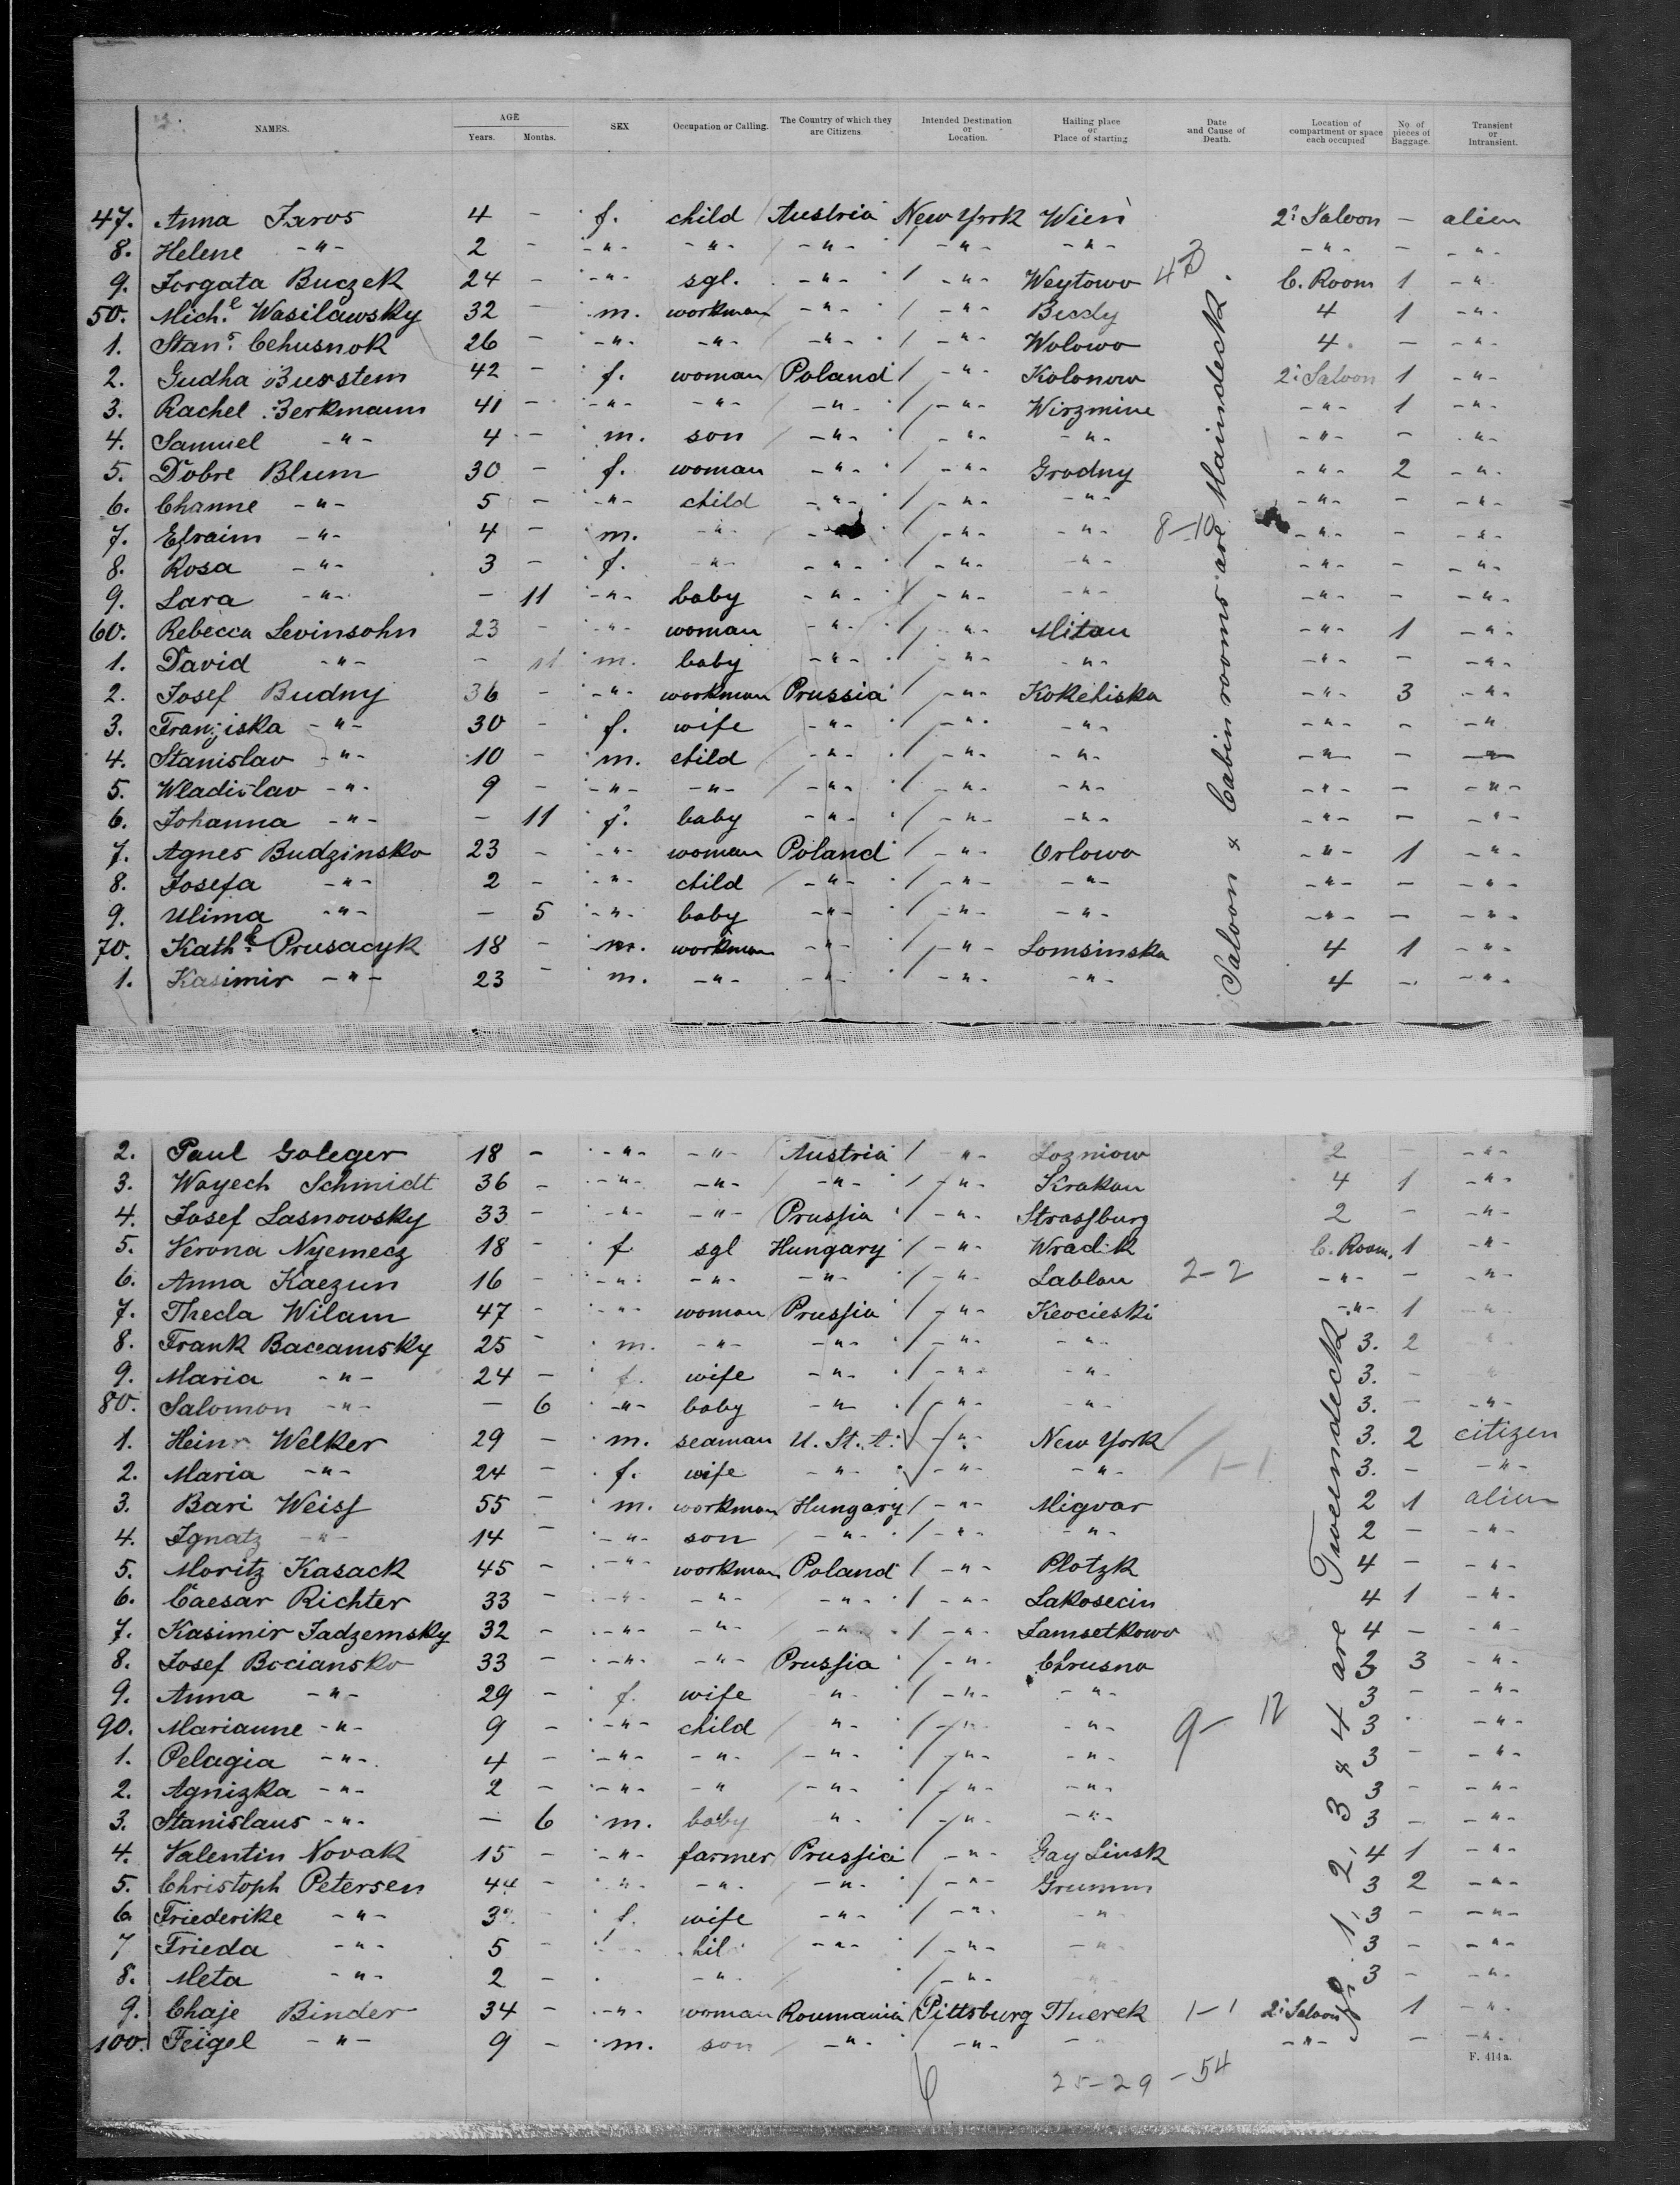 NAMES. AGE Years. Months. SEX Occupation or Calling. The Country of which they are Citizens. Intended Destination or Location. Hailing place or Place of starting Date and Cause of Death. Location of compartment or space each occupied No of pieces of Baggage. Transient or Intransient.
47. Anna Jaros 4 - f. child Austria New York Wien 2: Saloon - alien
8. Helene -"- 2 - -"- -"- -"- -"- -"- -"- - -"-
9. Jorgata Buczek 24 - -"- sgl. -"- -"- Weytowo C. Room 1 -"-
50. Mich.l Wasilawsky 32 m. workman -"- -"- 4 1 -"-
1. Stan.s Cehusnok 26 - -"- -"- -"- -"- Wolowo 4 - -"-
2. Gudha Burstem 42 - f. woman Poland -"- Kolonow 2: Saloon 1 -"-
3. Rachel Berkmann 41 - -"- -"- -"- -"- Wirzmine -"- 1 -"-
4. Samuel -"- 4 - m. son -"- -"- -"- -"- - -"-
5. Dobre Blum 30 - f. woman -"- -"- Grodny -"- 2 -"-
6. Channe -"- 5 - -"- child -"- -"- -"- -"- - -"-
7. Efraim -"- 4 - m. -"- -"- -"- 8-10 -"- - -"-
8. Rosa -"- 3 - f. -"- -"- -"- -"- -"- - -"-
9. Lara -"- - 11 -"- baby -"- -"- -"- -"- - -"-
60. Rebecca Levinsohn 23 - -"- woman -"- -"- Mitau -"- 1 -"-
1. David -"- - 11 m. baby -"- -"- -"- -"- - -"-
2. Josef Budny 36 - -"- workman Prussia -"- Kokeliska -"- 3 -"-
3. Franziska -"- 30 - f. wife -"- -"- -"- -"- - -"-
4. Stanislav -"- 10 - m. child -"- -"- -"- -"- - -"-
5. Wladislav -"- 9 - -"- -"- -"- -"- -"- -"- - -"-
6. Johanna -"- - 11 f. baby -"- -"- -"- -"- - -"-
7. Agnes Budzinsko 23 - -"- woman Poland -"- Orlowo -"- 1 -"-
8. Josefa -"- 2 - -"- child -"- -"- -"- -"- - -"-
9. Ulima -"- - 5 -"- baby -"- -"- -"- -"- - -"-
70. Kath. Prusacyk 18 - m. workman -"- -"- Lomsinska 4 1 -"-
1. Kasimir -"- 23 - m. -"- -"- -"- -"- 4 - -"-
Saloon & Cabin rooms are Maindeck.
2. Paul Goleger 18 - -"- -"- Austria -"- Lozniow 2 - -"-
3. Woyech Schmidt 36 - -"- -"- -"- -"- Krakau 4 1 -"-
4. Josef Lasnowsky 33 - -"- -"- Prussia -"- Strassburg 2 - -"-
5. Verona Nyemecz 18 - f sgl Hungary -"- Wradik C. Room. 1 -"-
6. Anna Kaezun 16 - -"- -"- -"- -"- Lablau 2-2 -"- - -"-
7. Thecla Wilam 47 - -"- woman Prussia -"- Keocieski -"- 1 -"-
8. Frank Baceamsky 25 - m. -"- -"- -"- -"- 3. 2 -"-
9. Maria -"- 24 - f. wife -"- -"- -"- 3. - -"-
80. Salomon -"- - 6 -"- baby -"- -"- -"- 3. - -"-
1. Heinr. Welker 29 - m. seaman U. St. A. -"- New York 3. 2 citizen
2. Maria -"- 24 - f. wife -"- -"- -"- 1-1 3. - -"-
3. Bari Weiss 55 - m. workman Hungary -"- Migvar 2 1 alien
4. Ignatz -"- 14 - -"- son -"- -"- -"- 2 - -"-
5. Moritz Kasack 45 - -"- workman Poland -"- Plotzk 4 - -"-
6. Caesar Richter 33 - -"- -"- -"- -"- Lakosecin 4 1 -"-
7. Kasimir Jadzemsky 32 - -"- -"- -"- -"- Lamsetkowo 4 - -"-
8. Josef Bocianska 33 - -"- -"- Prussia -"- Chrusno 3 3 -"-
9. Anna -"- 29 - f. wife -"- -"- -"- 3 - -"-
90. Marianne -"- 9 - -"- child -"- -"- -"- 9-12 3 -"-
1. Pelagia -"- 4 - -"- -"- -"- -"- -"- 3 - -"-
2. Agnizka -"- 2 - -"- -"- -"- -"- -"- 3 - -"-
3. Stanislaus -"- - 6 m. baby -"- -"- -"- 3 - -"-
4. Valentin Novak 15 - -"- farmer Prussia -"- Gay Linsk 4 1 -"-
5. Christoph Petersen 44 - -"- -"- -"- -"- Grumm 3 2 -"-
6. Friederike -"- f. wife -"- -"- -"- 3 - -"-
7 Frieda -"- 5 - -"- -"- -"- 3 - -"-
8. Meta -"- 2 - -"- -"- 3 - -"-
9. Chaje Binder 34 - -"- woman Roumania Pittsburg Thuerek 1-1 2: Saloon 1 -"-
100. Feigel -"- 9 - m. son -"- -"- -"- - -"-
No. 1, 2, 3 & 4 are Tweendeck
F. 414a.
25-29 -54